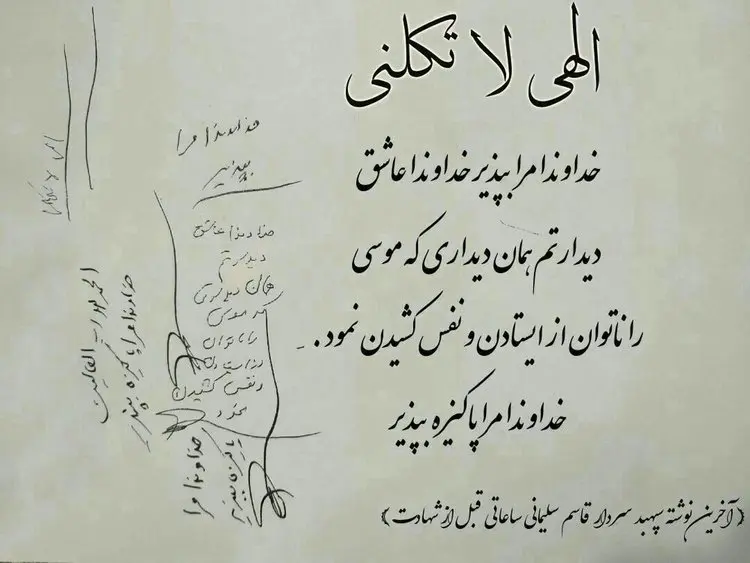 الهی لا تکلنی
خداوندا مرا بپذیر خداوندا عاشق
دیدارتم همان دیداری که موسی
را ناتوان از ایستادن و نفس کشیدن نمود .
خداوندا مرا پاکیزه بپذیر
(آخرین نوشته سپهبد سردار قاسم سلیمانی ساعاتی قبل از شهادت)
خداوندا مرا
بپذیر
خداوندا عاشق
دیدارتم
همان دیداری
که موسی
را ناتوان
از ایستادن
و نفس کشیدن
نمود
خداوندا مرا
پاکیزه بپذیر
الحمدلله رب العالمین
خداوندا مرا پاکیزه بپذیر
الهی لا تکلنی